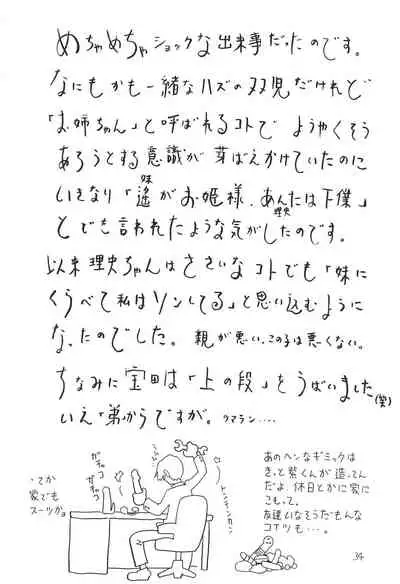 めちゃめちゃショックな出来事だったのです。
なにもかも一緒なハズの双児だけれど
「お姉ちゃん」と呼ばれるコトで ようやくそう
あろうとする意識が 芽ばえかけていたのに
いきなり「遙がお姫様、あんたは下僕」
妹
理史
とでも言われたような気がしたのです。
以来 理史ちゃんは ささいなコトでも「妹に
くらべて私はソンしてる」と思い込むように
なったのでした。 親が悪い、この子は悪くない。
ちなみに宝田は「上の段」をうばいました(笑)
いえ「弟」からですが。 スマラン‥‥
ってか
家でも
スーツかよ。
ガチャコ
ガチャコ
トンテンカン
あのヘンなギミックは
きっと紫くんが造ってん
だよ、休日とかに家に
こもって。
友達いなそうだもんな
コイツも…。
34